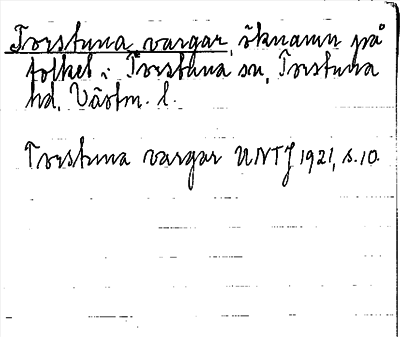 Torstuna vargar, öknamn på
folket i Torstuna sn, Torstuna
hd, Västm. l.
Torstuna vargar UNTJ 1921, s. 10.